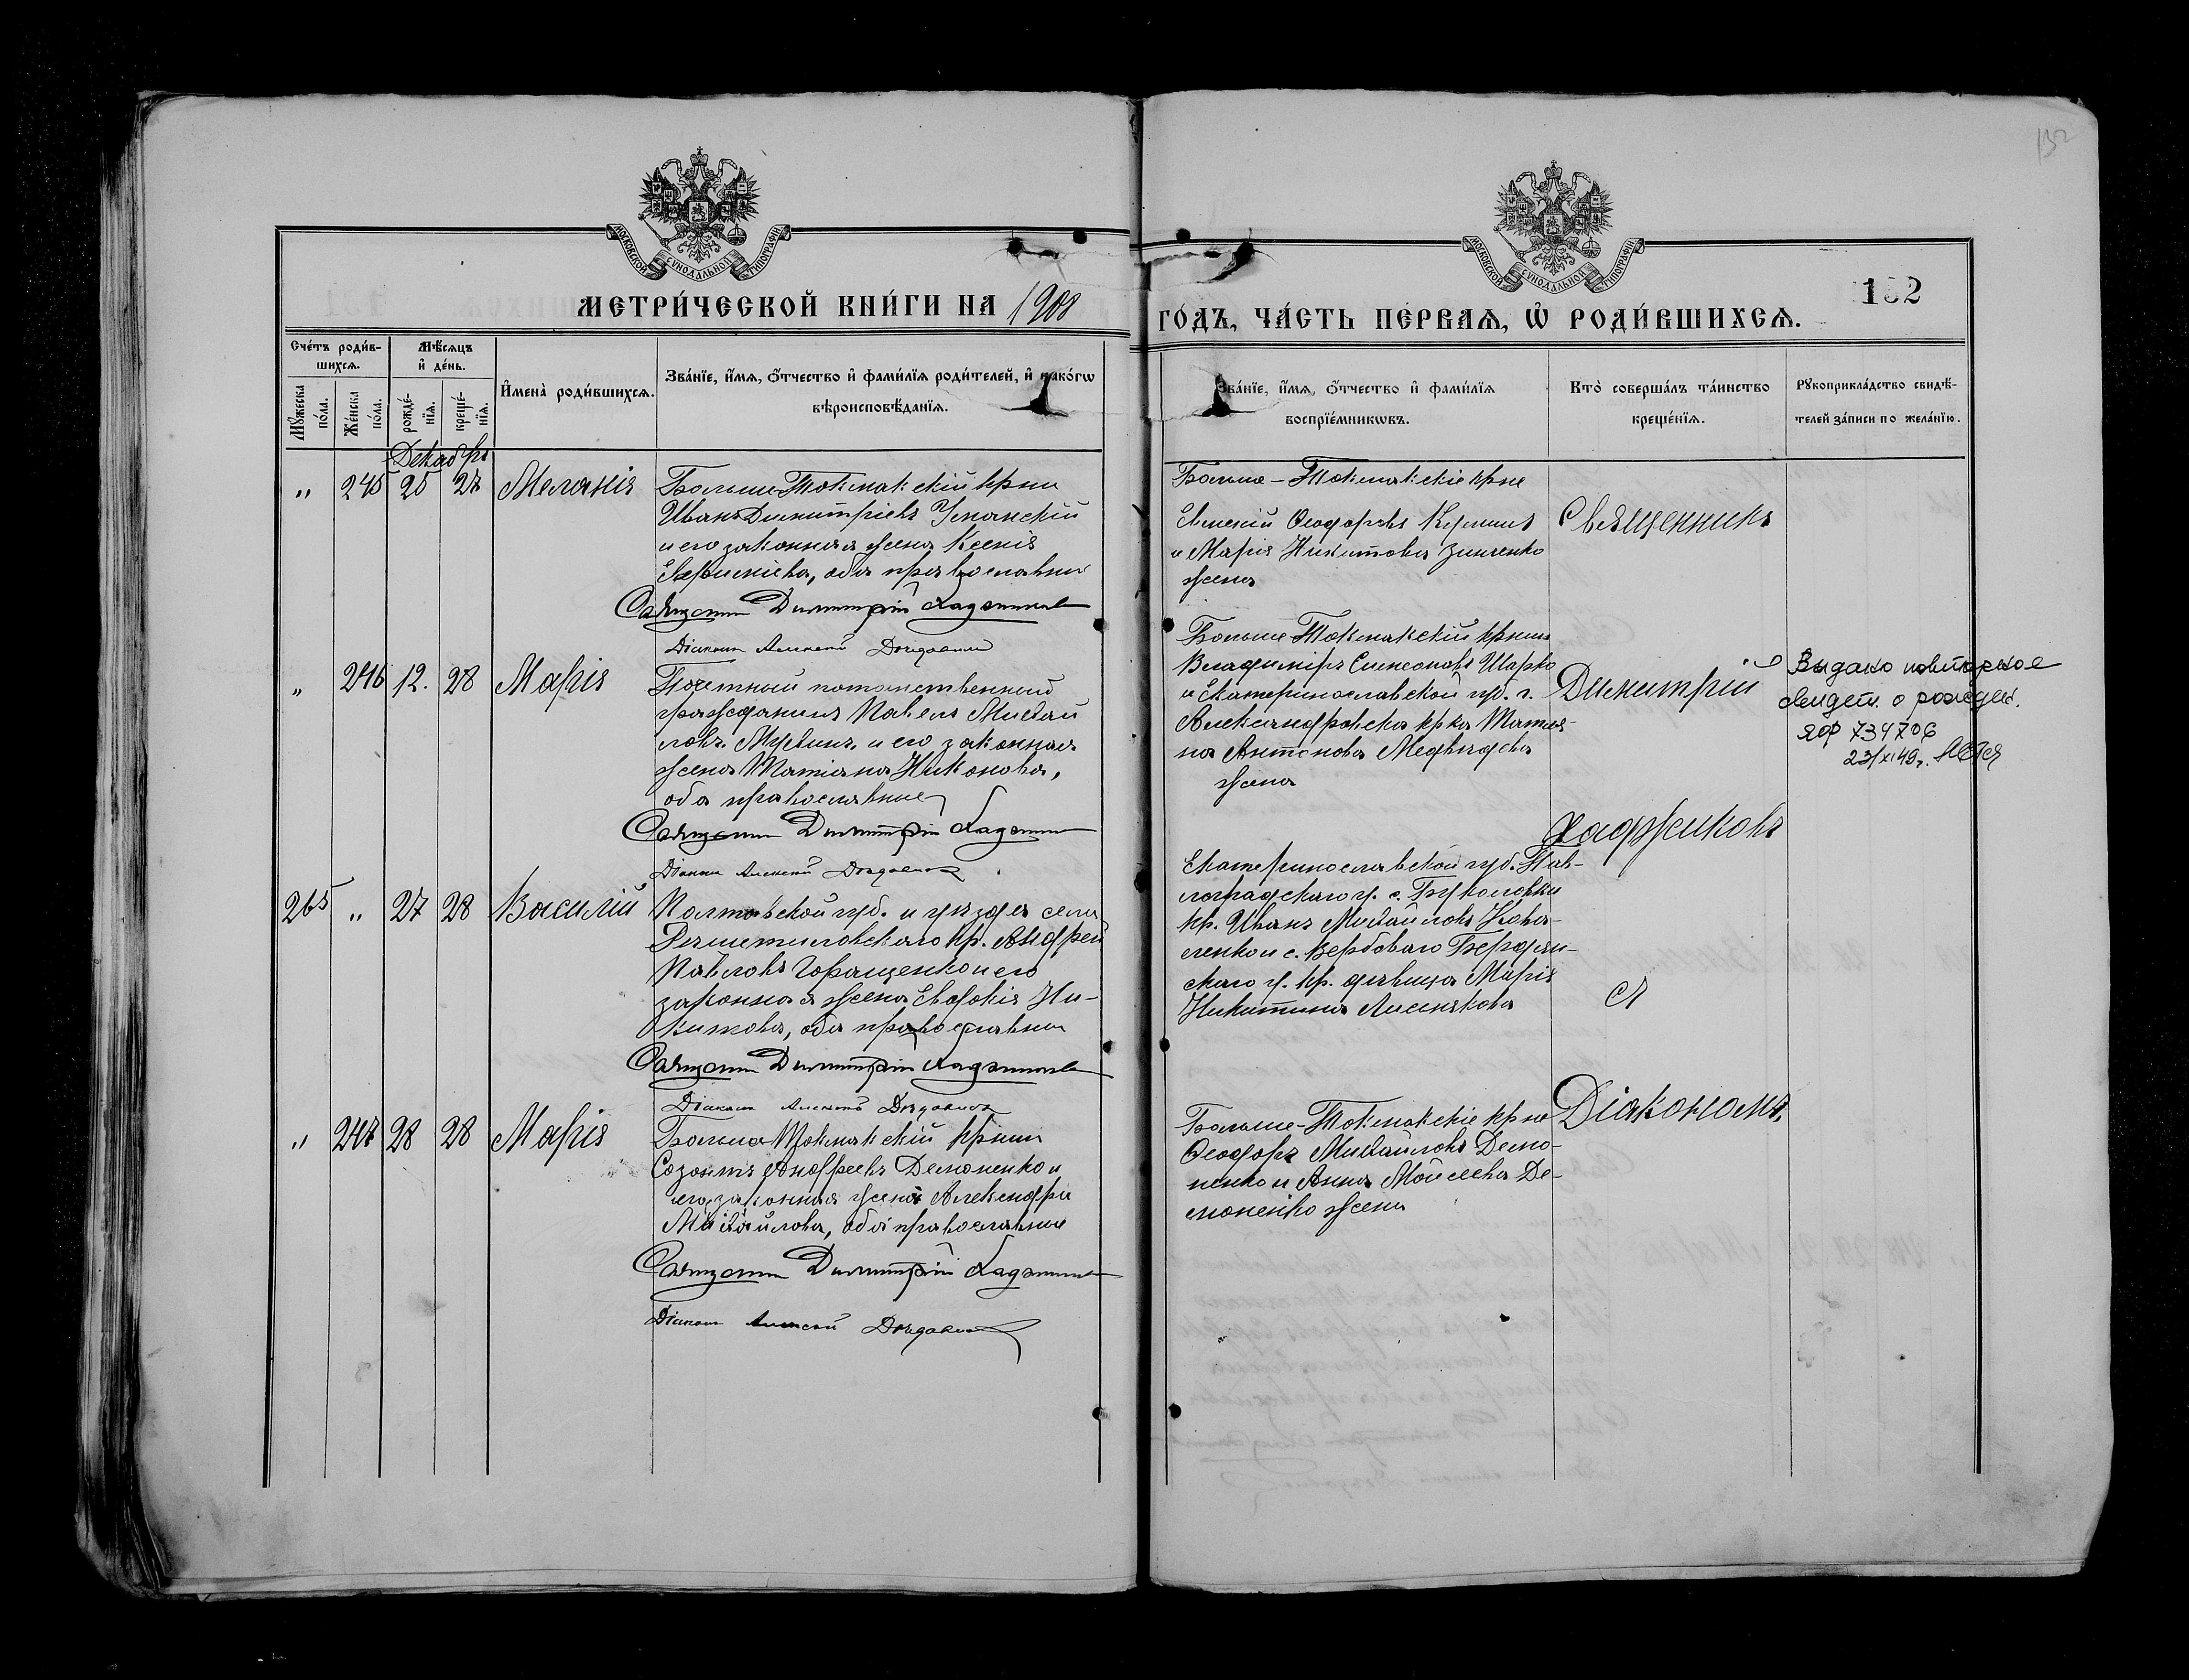 132
МОСКОВСКОЙ СѴНОДАЛЬНОЙ ТИПОГРАФІИ
МОСКОВСКОЙ СѴНОДАЛЬНОЙ ТИПОГРАФІИ
МЕТРИ́ЧЕСКОЙ КНИ́ГИ НА 1908
ГО́ДЪ, ЧА́СТЬ ПЕ́РВАѦ, Ѡ҆ РОДИ́ВШИХСѦ.
132
Сче́тъ роди́в-
шихсѧ.
Мꙋжеска по́ла.
Же́нска по́ла.
Мѣ́сѧцъ
и҆ де́нь.
рожде́-
нїѧ.
креще́-
нїѧ.
И҆мена̀ роди́вшихсѧ.
Зва́нїе, и҆́мѧ, ѻ҆́тчество и҆ фами́лїѧ роди́телей, и҆ како́гѡ
вѣроисповѣ́данїѧ.
Зва́нїе, и҆́мѧ, ѻ҆́тчество и҆ фами́лїѧ
воспрїе́мникѡвъ.
Кто̀ соверша́лъ та́инство
креще́нїѧ.
Рꙋкоприкла́дство свидѣ́-
телей за́писи по жела́нїю.
Декабрь
„ 245 25 27 Меланія
Больше-Токмакскій крнинъ
Иванъ Димитріевъ Уманскій
и его законная жена Ксенія
Ефиміева, оба православные
Священникъ Димитрій Хаджиновъ
Діаконъ Алексей
Больше-Токмакскіе крне
Ѳеодоровъ
и Марія Никитова Зинченко
жена
Священникъ
„ 246 12. 28 Марія
Почетный потомственный
гражданинъ Павелъ Михаи
ловъ и его законная
жена Татіана Никонова,
оба православные
Священникъ Димитрій
Діаконъ Алексей
Больше-Токмакскій крнинъ
Владиміръ Симеоновъ Шарко
и Екатеринославской губ. г.
Александровска кр-ка Татья-
на Антонова Медвидева
жена
Димитрій
Хаджиновъ
Выдано повторное
свидет. о рожден.
ЯФ 734706
23/XI 49г.
265 „ 27 28 Василій
Полтавской губ. и уѣзда села
Решетиловскаго кр. Андрей
Павловъ Горащенко и его
законная жена Евдокія Ни-
китова, оба православные
Священникъ Димитрій Хаджиновъ
Діаконъ Алексей
Екатеринославской губ. Пав-
лоградскаго у. с.
кр. Иванъ Михайловъ Кова-
ленко и с. Вербоваго Бердян-
скаго у. кр. дѣвица Марія
Никитина Лисникова
съ
„ 247 28 28 Марія
Больше-Токмакскій крнинъ
Созонтъ Андреевъ Демоненко и
его законная жена Александра
Михайлова, оба православные
Священникъ Димитрій Хаджиновъ
Діаконъ Алексей
Больше-Токмакскіе крне
Ѳеодоръ Михайловъ Демо-
ненко и Анна Мойсеева Де-
моненко жена
Діакономъ.